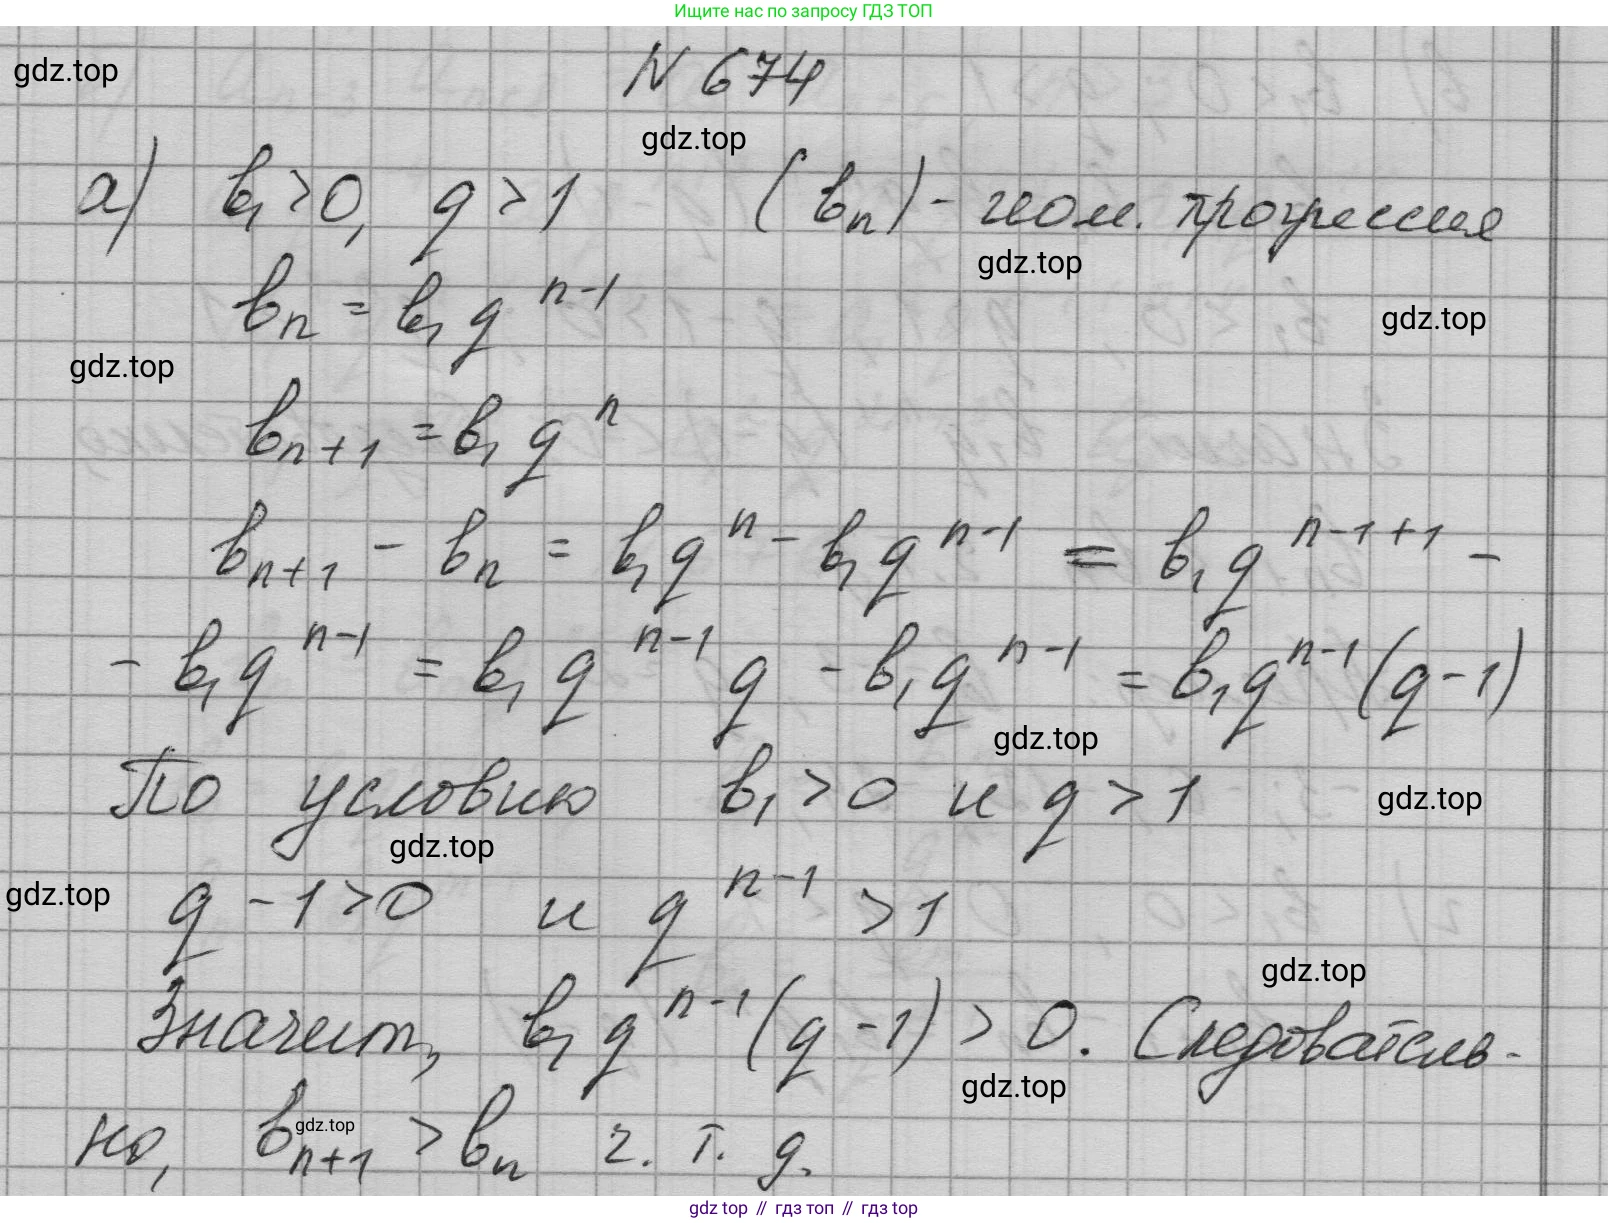 Ищите нас по запросу ГДЗ ТОП
N 674
gdz.top
gdz.top
а) b₁ > 0, q > 1 (bₙ) - геом. прогрессия
gdz.top
bₙ = b₁ q^{n-1}
gdz.top
gdz.top
bₙ₊₁ = b₁ q^{n}
bₙ₊₁ - bₙ = b₁ q^{n} - b₁ q^{n-1} = b₁ q^{n-1+1} -
- b₁ q^{n-1} = b₁ q^{n-1} q - b₁ q^{n-1} = b₁ q^{n-1} (q-1)
gdz.top
По условию b₁ > 0 и q > 1
gdz.top
gdz.top
gdz.top
q - 1 > 0 и q^{n-1} > 1
gdz.top
Значит, b₁ q^{n-1} (q-1) > 0. Следователь-
gdz.top
но, bₙ₊₁ > bₙ ч. т. д.
gdz.top
gdz top // гдз топ // гдз top